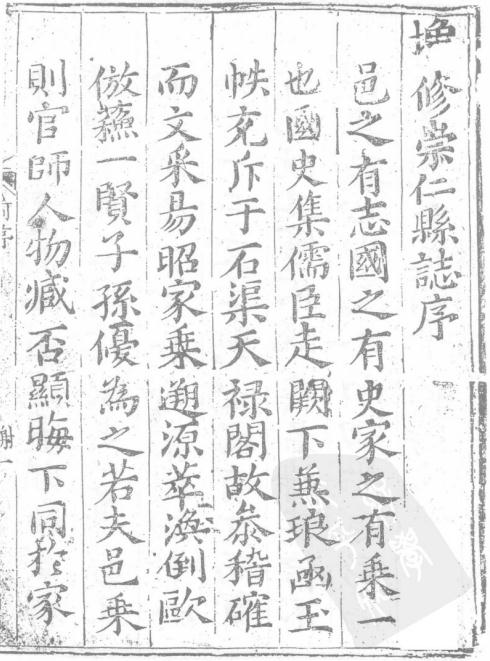 修崇仁縣誌序
邑之有志國之有史家之有乗一
也國史集儒臣走闕下蒹琅凾玉
帙充斥于石渠天禄閣故叅稽確
而文采易昭家乗遡源萃渙倒歐
倣蘓一賢子孫優為之若夫邑乗
則官師人物臧否顯晦下同扵家